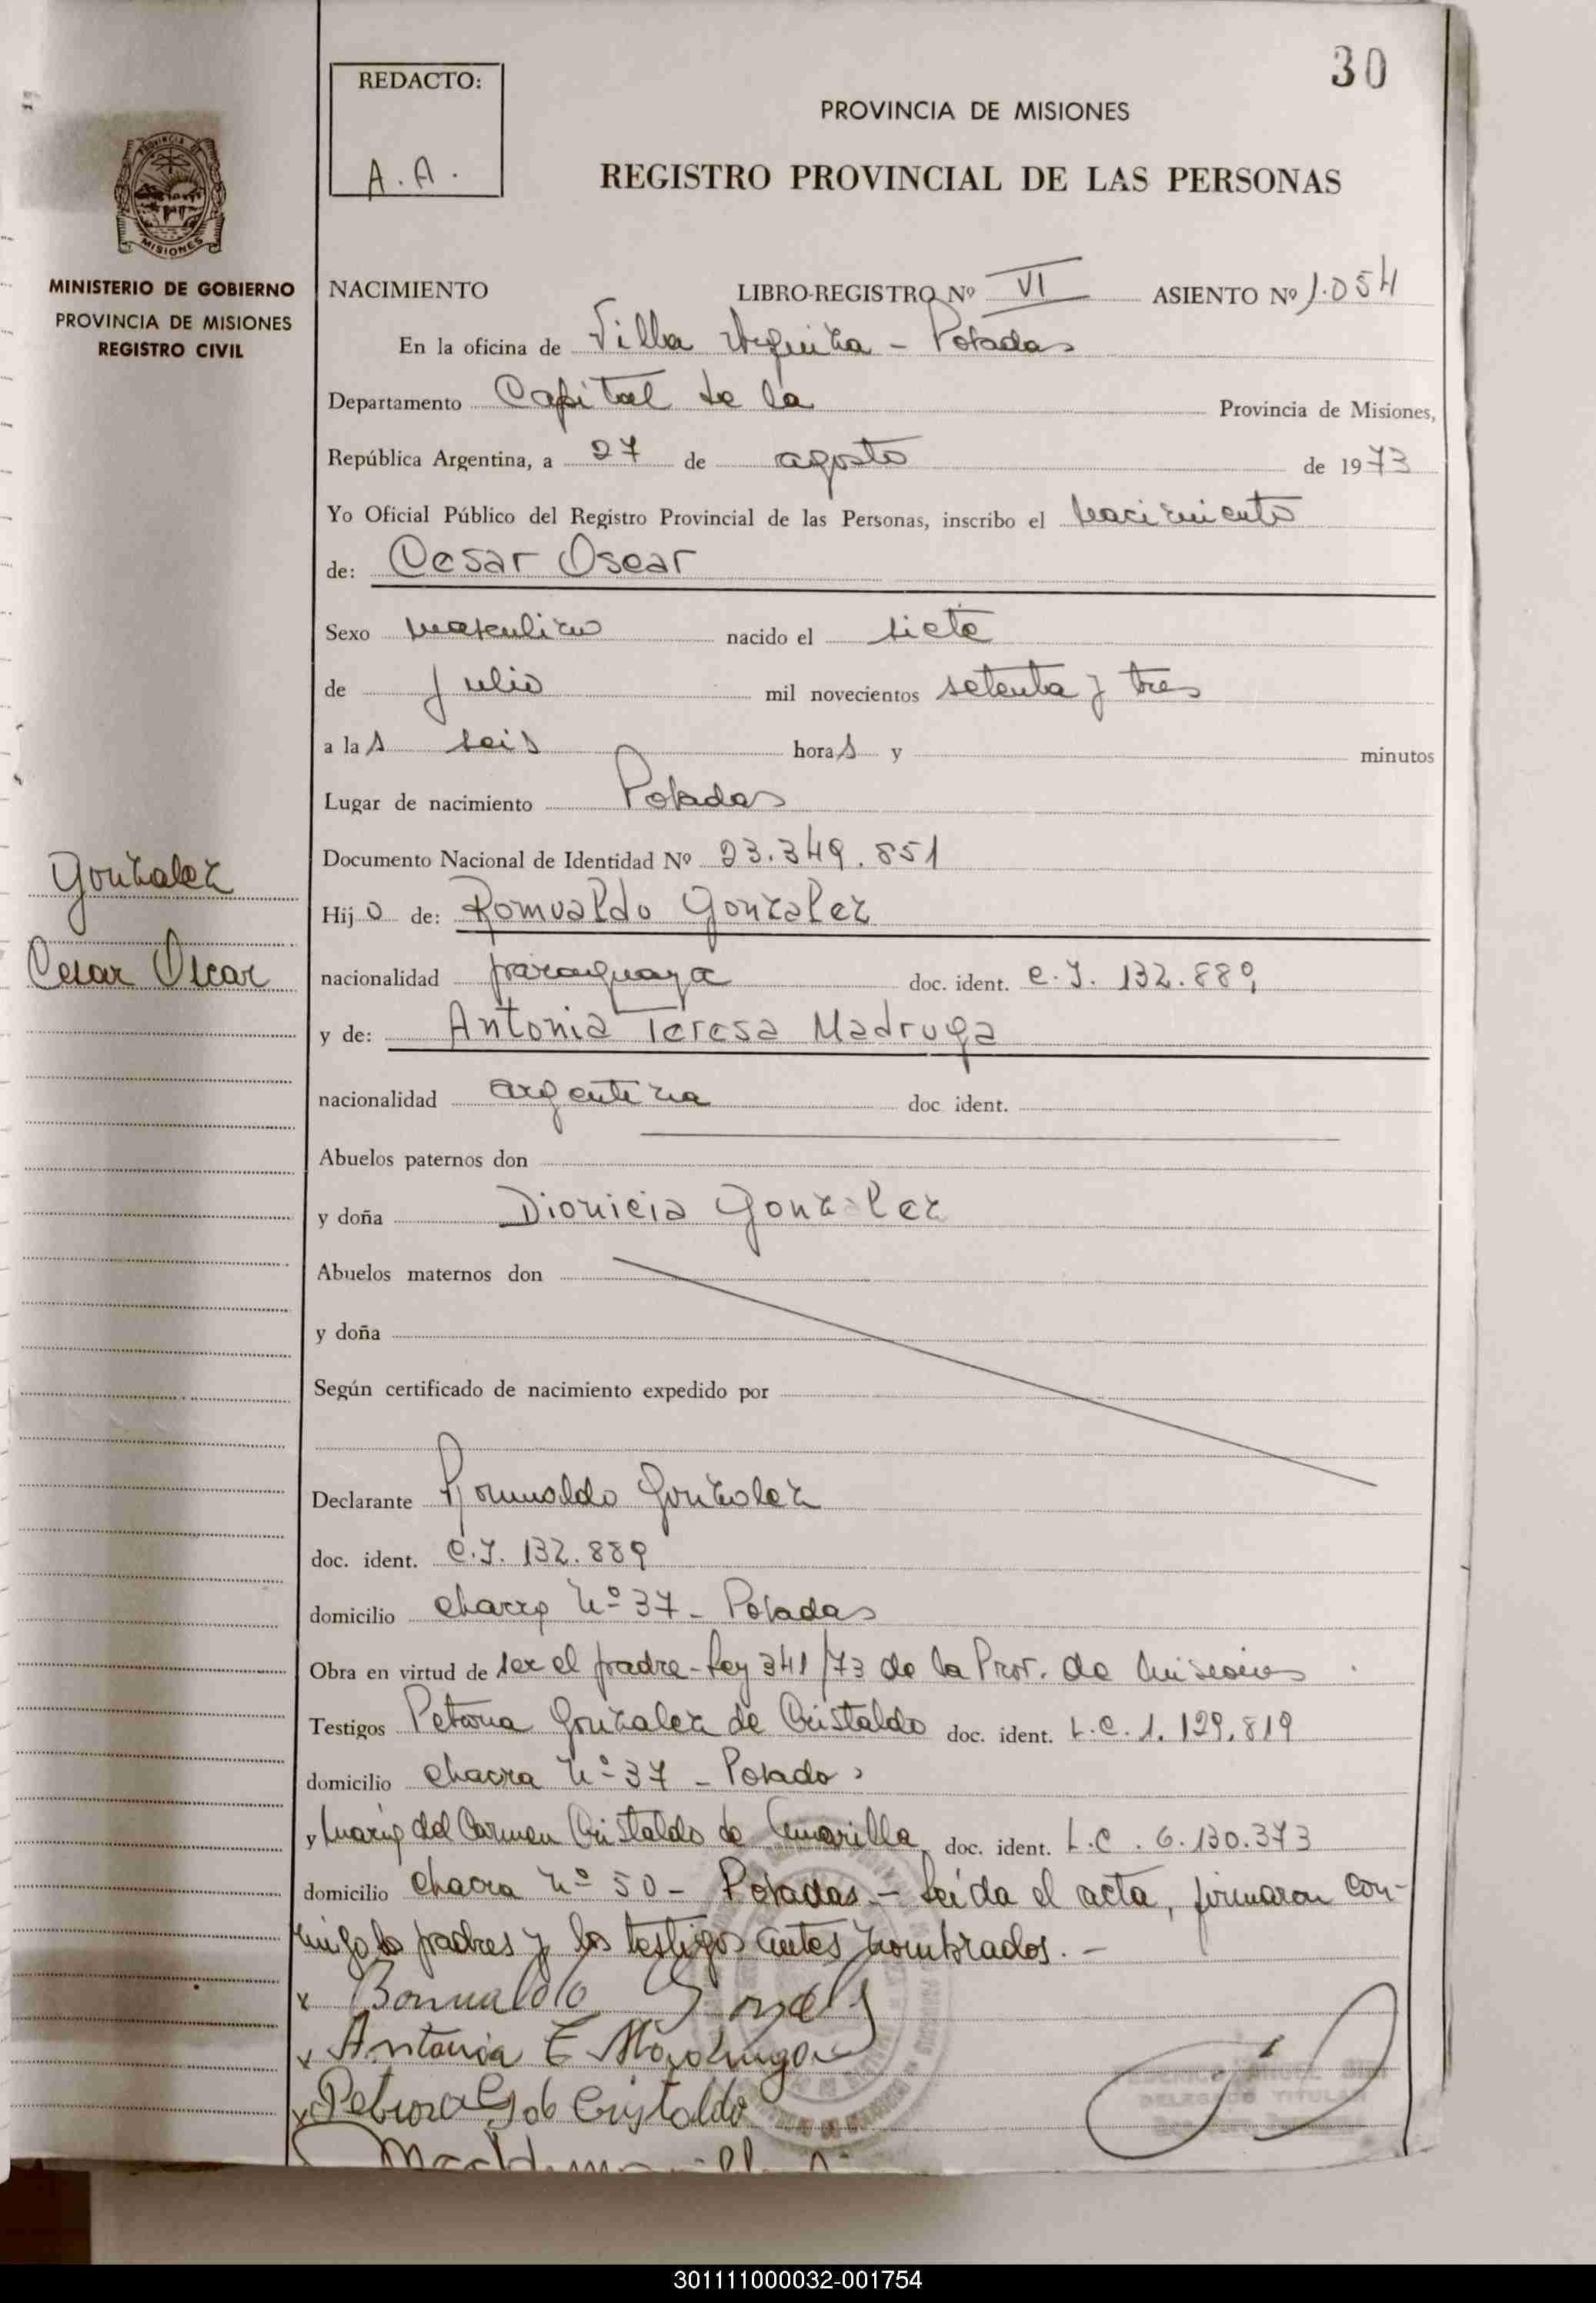 30
REDACTO:
A. A.
PROVINCIA DE MISIONES
REGISTRO PROVINCIAL DE LAS PERSONAS
PROVINCIA DE
MISIONES
MINISTERIO DE GOBIERNO
PROVINCIA DE MISIONES
REGISTRO CIVIL
NACIMIENTO LIBRO-REGISTRO Nº VI ASIENTO Nº 1.054
En la oficina de Villa Urquiza - Posadas
Departamento Capital de la Provincia de Misiones,
República Argentina, a 27 de agosto de 1973
Yo Oficial Público del Registro Provincial de las Personas, inscribo el nacimiento
de: Cesar Oscar
Sexo masculino nacido el siete
de julio mil novecientos setenta y tres
a las seis horas y minutos
Lugar de nacimiento Posadas
Documento Nacional de Identidad Nº 23.349.851
Gonzalez
Cesar Oscar
Hijo de: Romualdo Gonzalez
nacionalidad paraguaya doc. ident. C.I. 132.889
y de: Antonia Teresa Madruga
nacionalidad argentina doc ident.
Abuelos paternos don
y doña Dionicia Gonzalez
Abuelos maternos don
y doña
Según certificado de nacimiento expedido por
Declarante Romualdo Gonzalez
doc. ident. C.I. 132.889
domicilio chacra Nº 37 - Posadas
Obra en virtud de ser el padre - Ley 341/73 de la Prov. de Misiones
Testigos Petrona Gonzalez de Cristaldo doc. ident. L.C. 1.129.819
domicilio chacra Nº 37 - Posadas
y Maria del Carmen Cristaldo de Amarilla doc. ident. L.C. 6.130.373
domicilio chacra Nº 50 - Posadas - Leída el acta, firmaron con-
migo los padres y los testigos antes nombrados. -
x Romualdo Gonzalez
x Antonia T Madruga
x Petrona G de Cristaldo
DELEGADO TITULAR
301111000032-001754